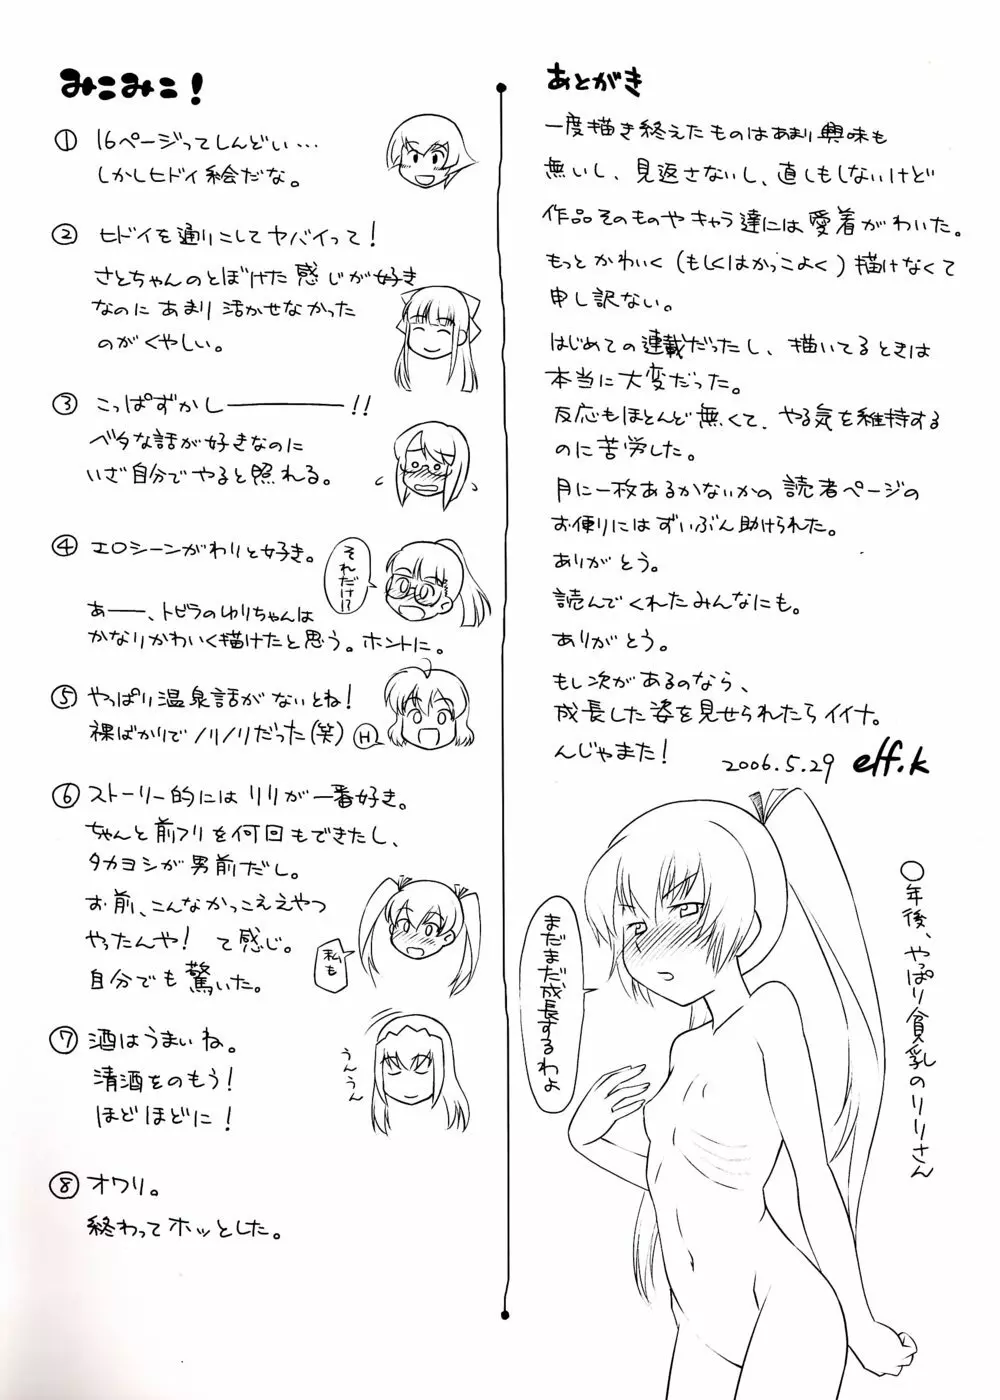 みこみこ！
① 16ページってしんどい…
しかしヒドイ絵だな。
② ヒドイを通りこしてヤバイって！
さとちゃんのとぼけた感じが好き
なのにあまり活かせなかった
のがくやしい。
③ こっぱずかしー！！
ベタな話が好きなのに
いざ自分でやると照れる。
④ エロシーンがわりと好き。
それだけ!?
あー、トビラのゆりちゃんは
かなりかわいく描けたと思う。ホントに。
⑤ やっぱり温泉話がないとね！
裸ばかりでノリノリだった(笑)
H
⑥ ストーリー的にはリリが一番好き。
ちゃんと前フリを何回もできたし、
タカヨシが男前だし。
お前、こんなかっこええやつ
やったんや！ て感じ。
自分でも驚いた。
私も
⑦ 酒はうまいね。
清酒をのもう！
ほどほどに！
うんうん
⑧ オワリ。
終わってホッとした。
あとがき
一度描き終えたものはあまり興味も
無いし、見返さないし、直しもしないけど
作品そのものやキャラ達には愛着がわいた。
もっとかわいく(もしくはかっこよく)描けなくて
申し訳ない。
はじめての連載だったし、描いてるときは
本当に大変だった。
反応もほとんど無くて、やる気を維持する
のに苦労した。
月に一枚あるかないかの読者ページの
お便りにはずいぶん助けられた。
ありがとう。
読んでくれたみんなにも。
ありがとう。
もし次があるのなら、
成長した姿を見せられたらイイナ。
んじゃまた！
2006.5.29 elf.k
〇年後、やっぱり貧乳のリリさん
まだまだ成長するわよ